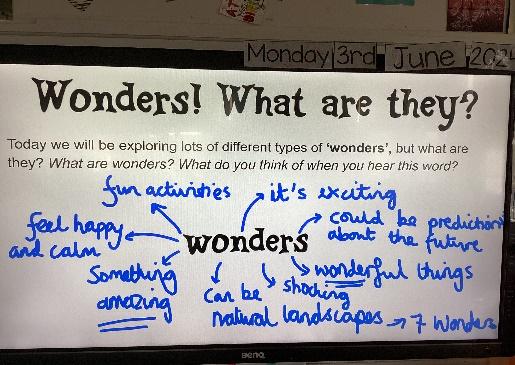 Monday 3rd June 2024
Wonders! What are they?
Today we will be exploring lots of different types of 'wonders', but what are
they? What are wonders? What do you think of when you hear this word?
fun activities
it's exciting
feel happy
and calm
could be predictions
about the future
wonders
Something
amazing
wonderful things
can be
shocking
natural landscapes → 7 Wonders
BenQ